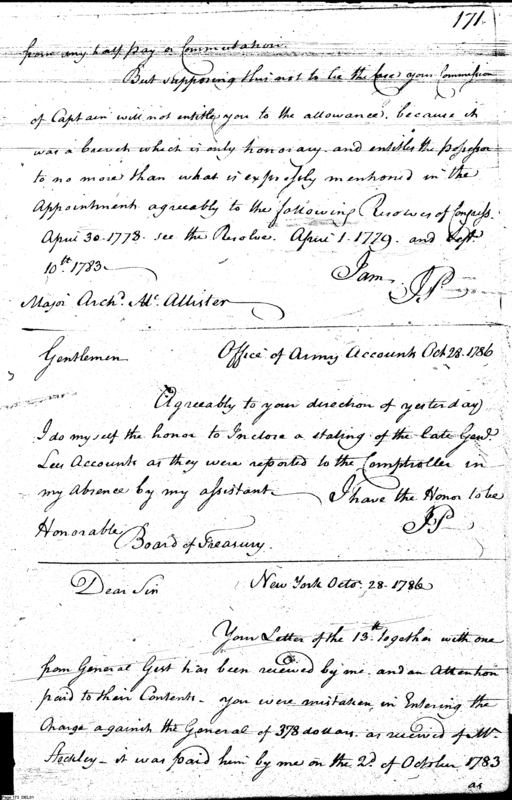 171.
from any half pay or Commutation.
But supposing this not to be the case your Commission
of Captain will not entitle you to the allowance, because it
was a brevet which is only honorary and entitles the possessor
to no more than what is expressly mentioned in the
Appointment agreeably to the following Resolves of Congress.
April 30. 1778. see the Resolve. April 1. 1779. and Sept.
10th. 1783.
I am JP
Major Archd. Mc. Allister
Gentlemen Office of Army Accounts Oct 28. 1786
Agreeably to your direction of yesterday
I do myself the honor to Inclose a stating of the late Genl.
Lees Accounts as they were reported to the Comptroller in
my absence by my assistant I have the Honor to be
Honorable JP
Board of Treasury.
Dear Sir New York Octo. 28. 1786
Your Letter of the 13th. together with one
from General Gist has been received by me and an Attention
paid to their Contents - you were mistaken in Entering the
Charge against the General of 378 dollars. as received of Mr.
- it was paid him by me on the 2d. of October 1783
as
Page 173 DEL91